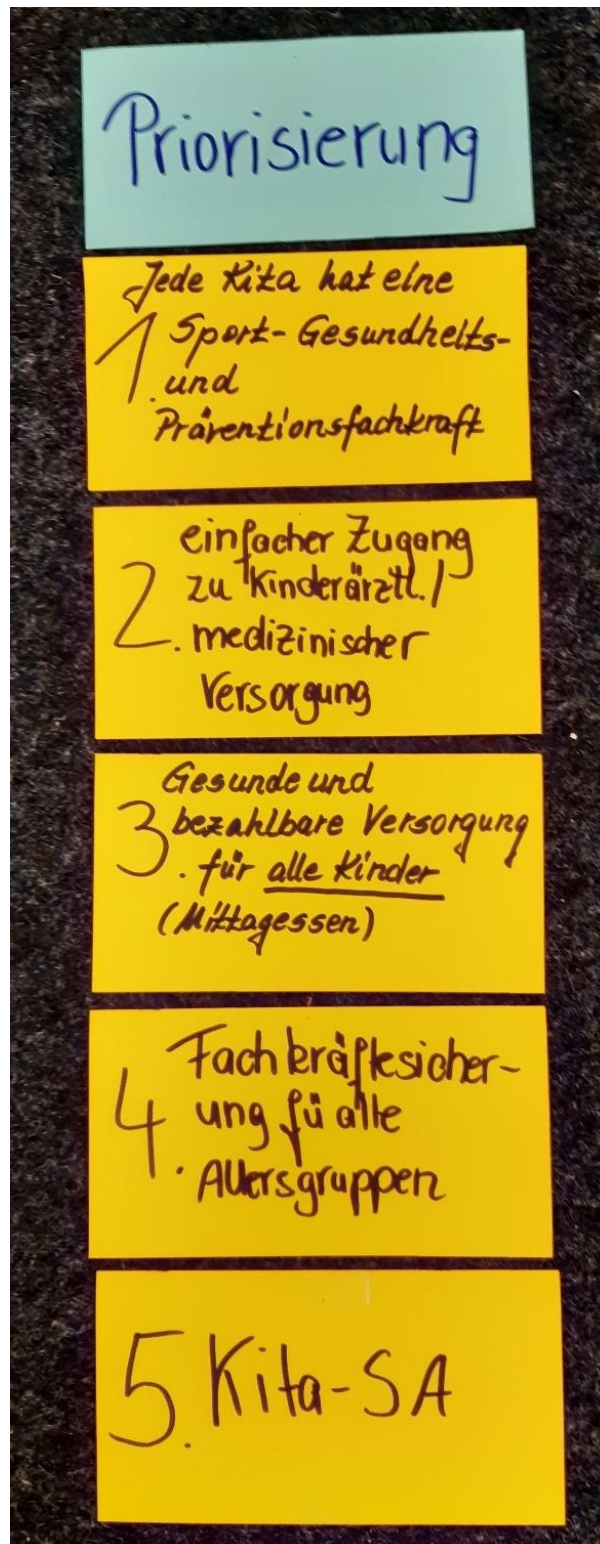 Priorisierung
Jede Kita hat eine
1. Sport- Gesundheits-
und
Präventionsfachkraft
einfacher Zugang
2. zu Kinderärztl./
medizinischer
Versorgung
Gesunde und
3. bezahlbare Versorgung
für alle Kinder
(Mittagessen)
Fachkräftesicher-
4. ung fü alle
Altersgruppen
5. Kita-SA